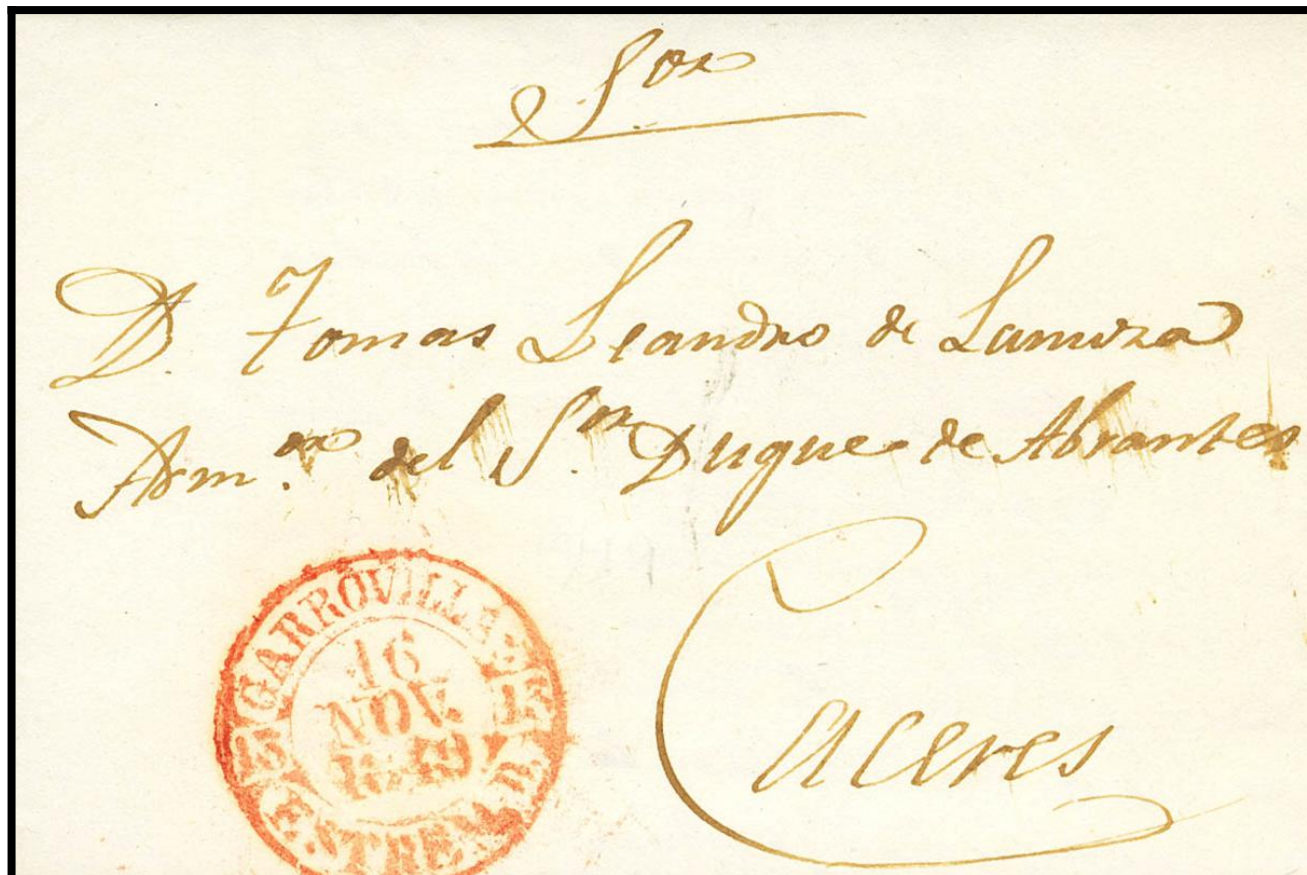 Sor
D. Tomas Leandro de Lamiza
Adm.or del Sor Duque de Abrantes
Caceres
GARROVILLAS
16
NOV.
1849
ESTREMAD